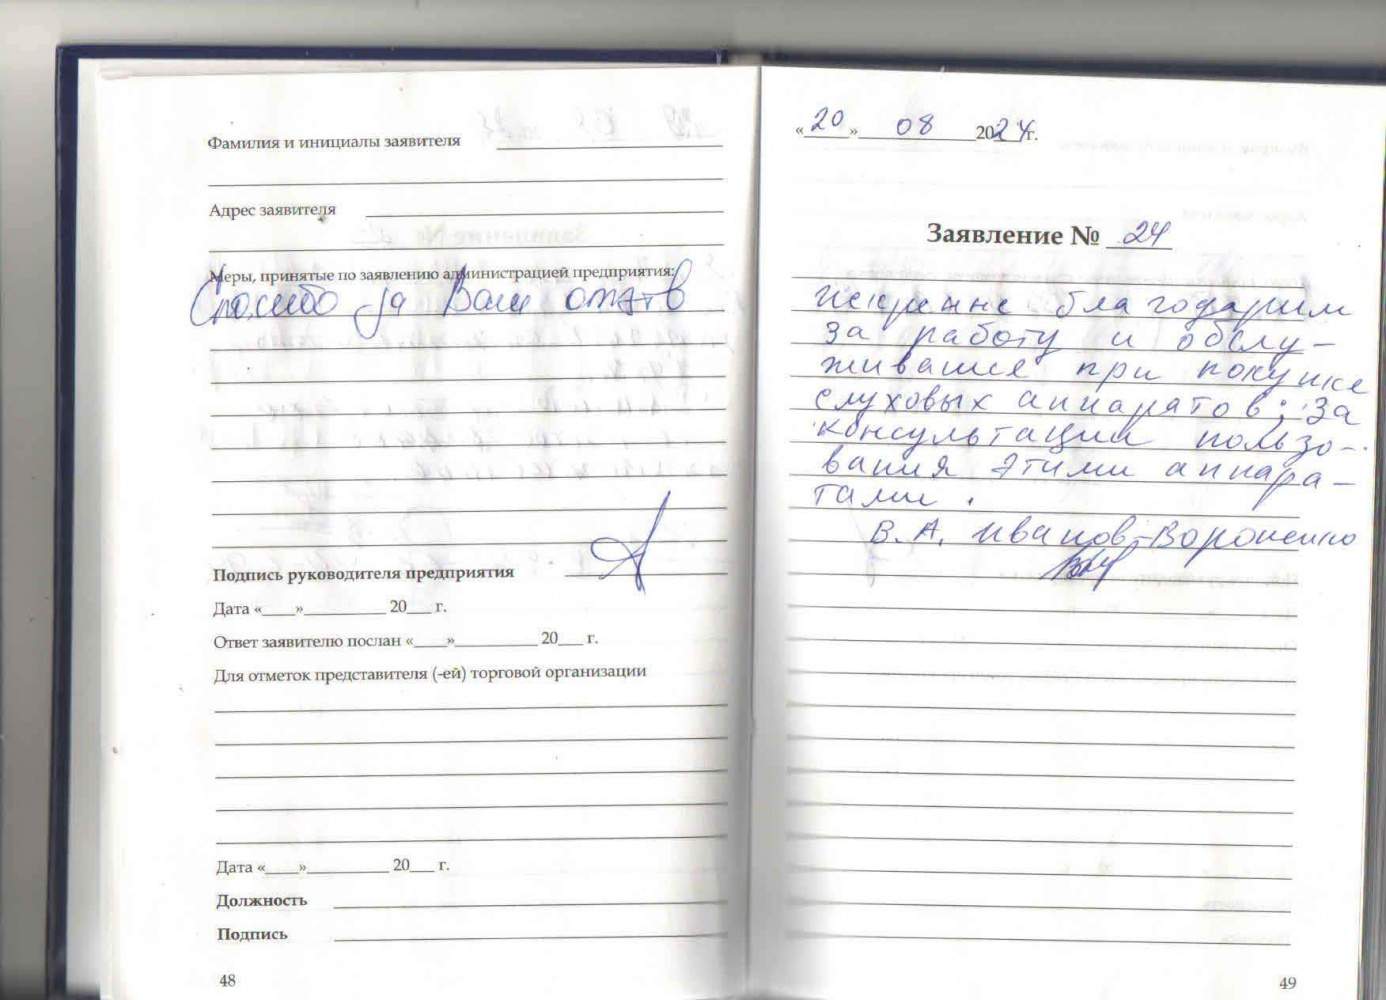 Фамилия и инициалы заявителя
Адрес заявителя
Меры, принятые по заявлению администрацией предприятия:
Спасибо за Ваш отзыв
Подпись руководителя предприятия
Дата «____»__________ 20___ г.
Ответ заявителю послан «____»__________ 20___ г.
Для отметок представителя (-ей) торговой организации
Дата «____»__________ 20___ г.
Должность
Подпись
48
«20» 08 2024г.
Заявление № 24
Искренне благодарим
за работу и обслу-
живание при покупке
слуховых аппаратов; за
консультации пользо-
вания этими аппара-
тами.
В.А. Иванов-Вороненко
49